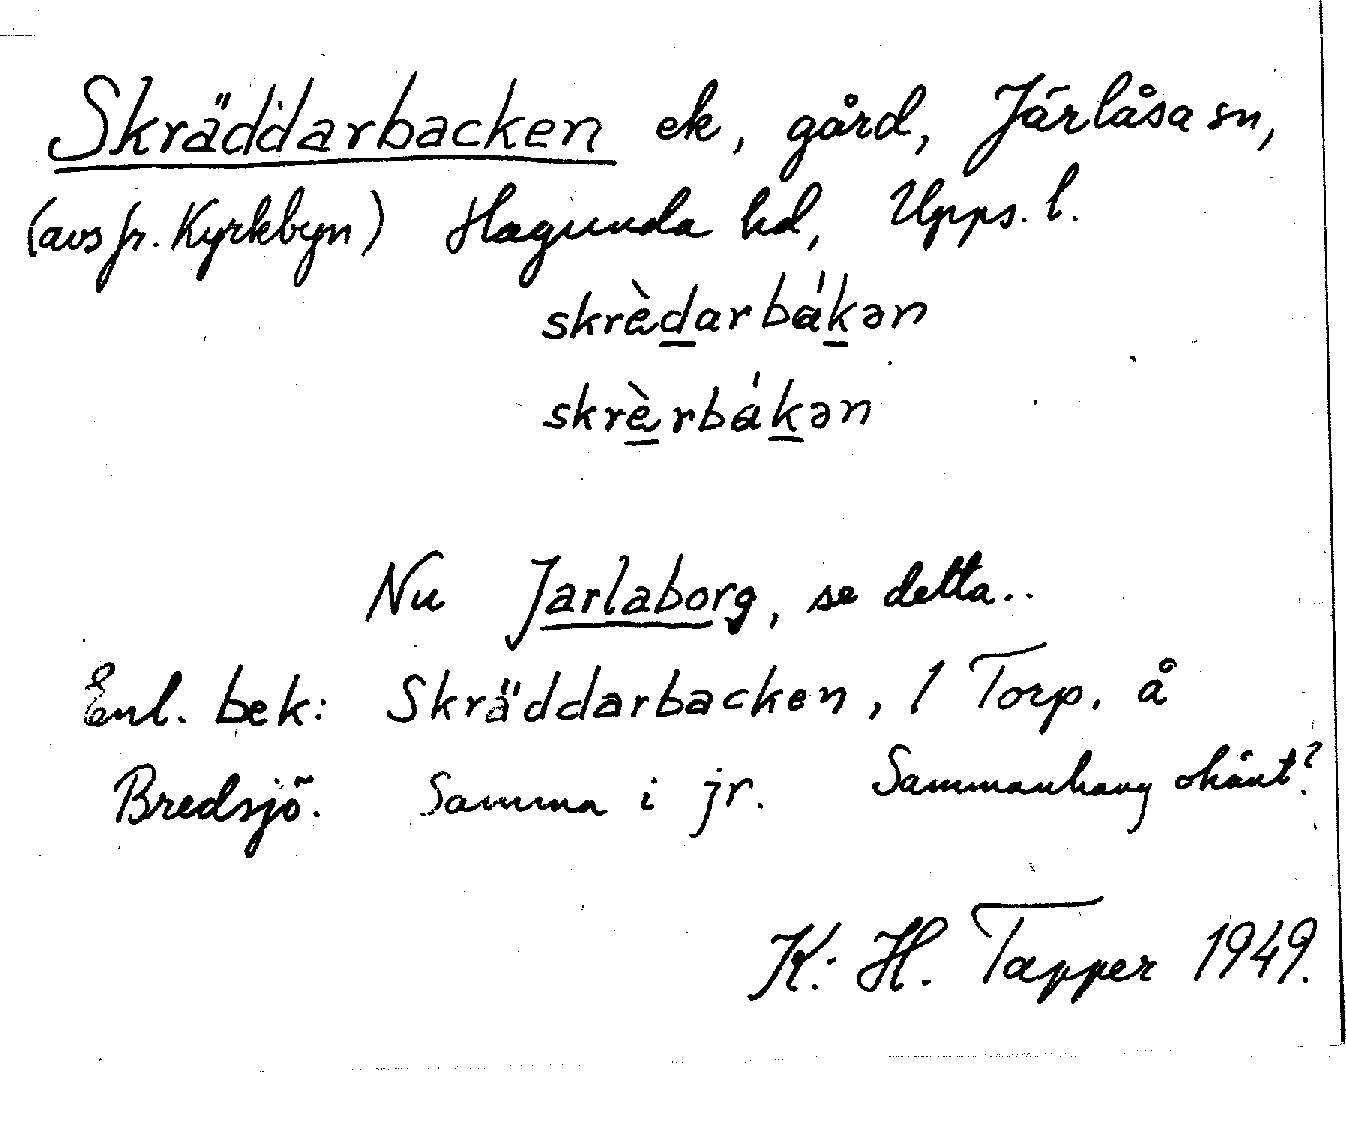 Skräddarbacken ek, gård, Järlåsa sn,
(avs fr. Kyrkbyn) Hagunda hd, Upps. l.
skrèdarbákən
skrèrbákən
Nu Jarlaborg, se detta..
Enl. bek: Skräddarbacken, 1 Torp. å
Bredsjö. Samma i jr. Sammanhang okänt?
K.-H. Tapper 1949.